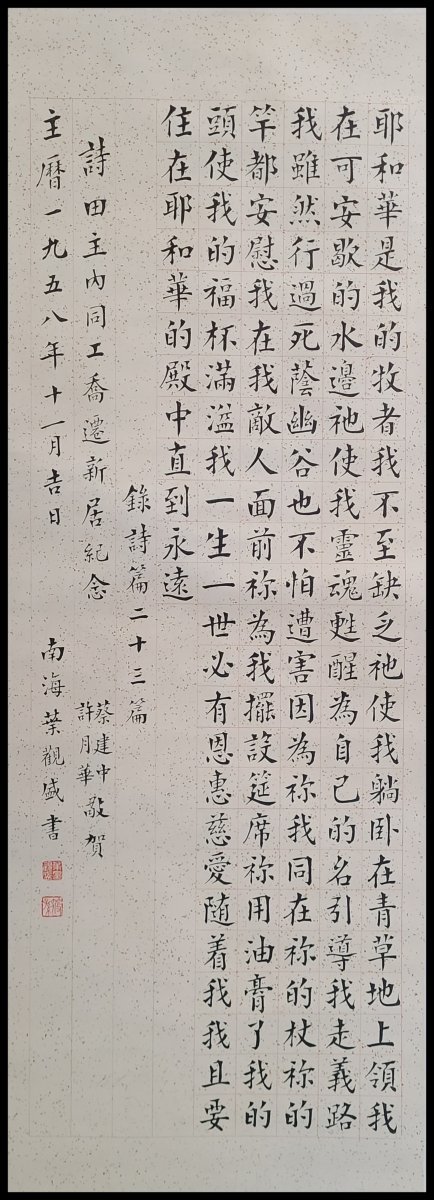 耶和華是我的牧者我不至缺乏祂使我躺卧在青草地上領我
在可安歇的水邊祂使我靈魂甦醒為自己的名引導我走義路
我雖然行過死蔭幽谷也不怕遭害因為祢我同在祢的杖祢的
竿都安慰我在我敵人面前祢為我擺設筵席祢用油膏了我的
頭使我的福杯滿溢我一生一世必有恩惠慈愛随着我我且要
住在耶和華的殿中直到永遠
錄詩篇二十三篇
詩田主內同工喬遷新居紀念
蔡建中
許月華
敬賀
主曆一九五八年十一月吉日
南海葉觀盛書